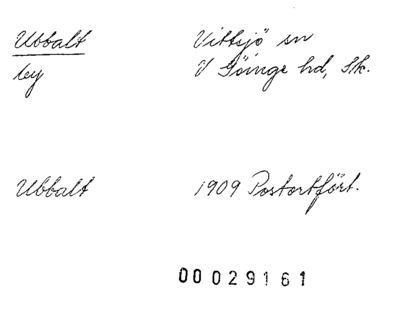 Ubbalt Vittsjö sn
by V Göinge hd, Sk.
Ubbalt 1909 Postortfört.
00029161